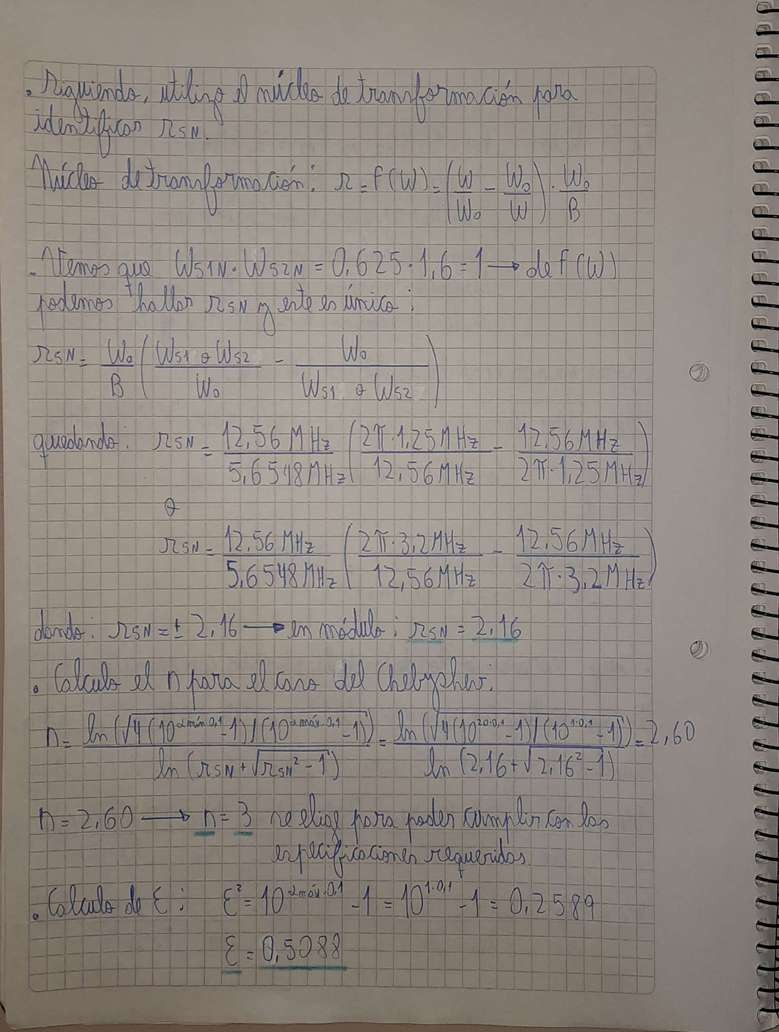 . Siguiendo, utilizo el núcleo de transformación para
identificar ΩSN.
Núcleo de transformación: Ω = f(W) = (W/W₀ - W₀/W) · W₀/B
. Vemos que WS1N · WS2N = 0,625 · 1,6 = 1 → de f(W)
podemos hallar ΩSN y este es único:
ΩSN = W₀/B ( (WS1 o WS2)/W₀ - W₀/(WS1 o WS2) )
quedando: ΩSN = 12,56 MHz/5,6548 MHz ( 2π·1,25 MHz/12,56 MHz - 12,56 MHz/2π·1,25 MHz )
o
ΩSN = 12,56 MHz/5,6548 MHz ( 2π·3,2 MHz/12,56 MHz - 12,56 MHz/2π·3,2 MHz )
dando: ΩSN = ± 2,16 → en módulo: ΩSN = 2,16
. Calculo el n para el caso del Chebyshev:
n = ln(√(4(10^(αmín·0,1) - 1)/(10^(αmáx·0,1) - 1)))/ln(ΩSN + √(ΩSN² - 1)) = ln(√(4(10^(20·0,1) - 1)/(10^(1·0,1) - 1)))/ln(2,16 + √(2,16² - 1)) = 2,60
n = 2,60 → n = 3 se elige para poder cumplir con las
especificaciones requeridas
. Calculo de ε: ε² = 10^(αmáx·0,1) - 1 = 10^(1·0,1) - 1 = 0,2589
ε = 0,5088